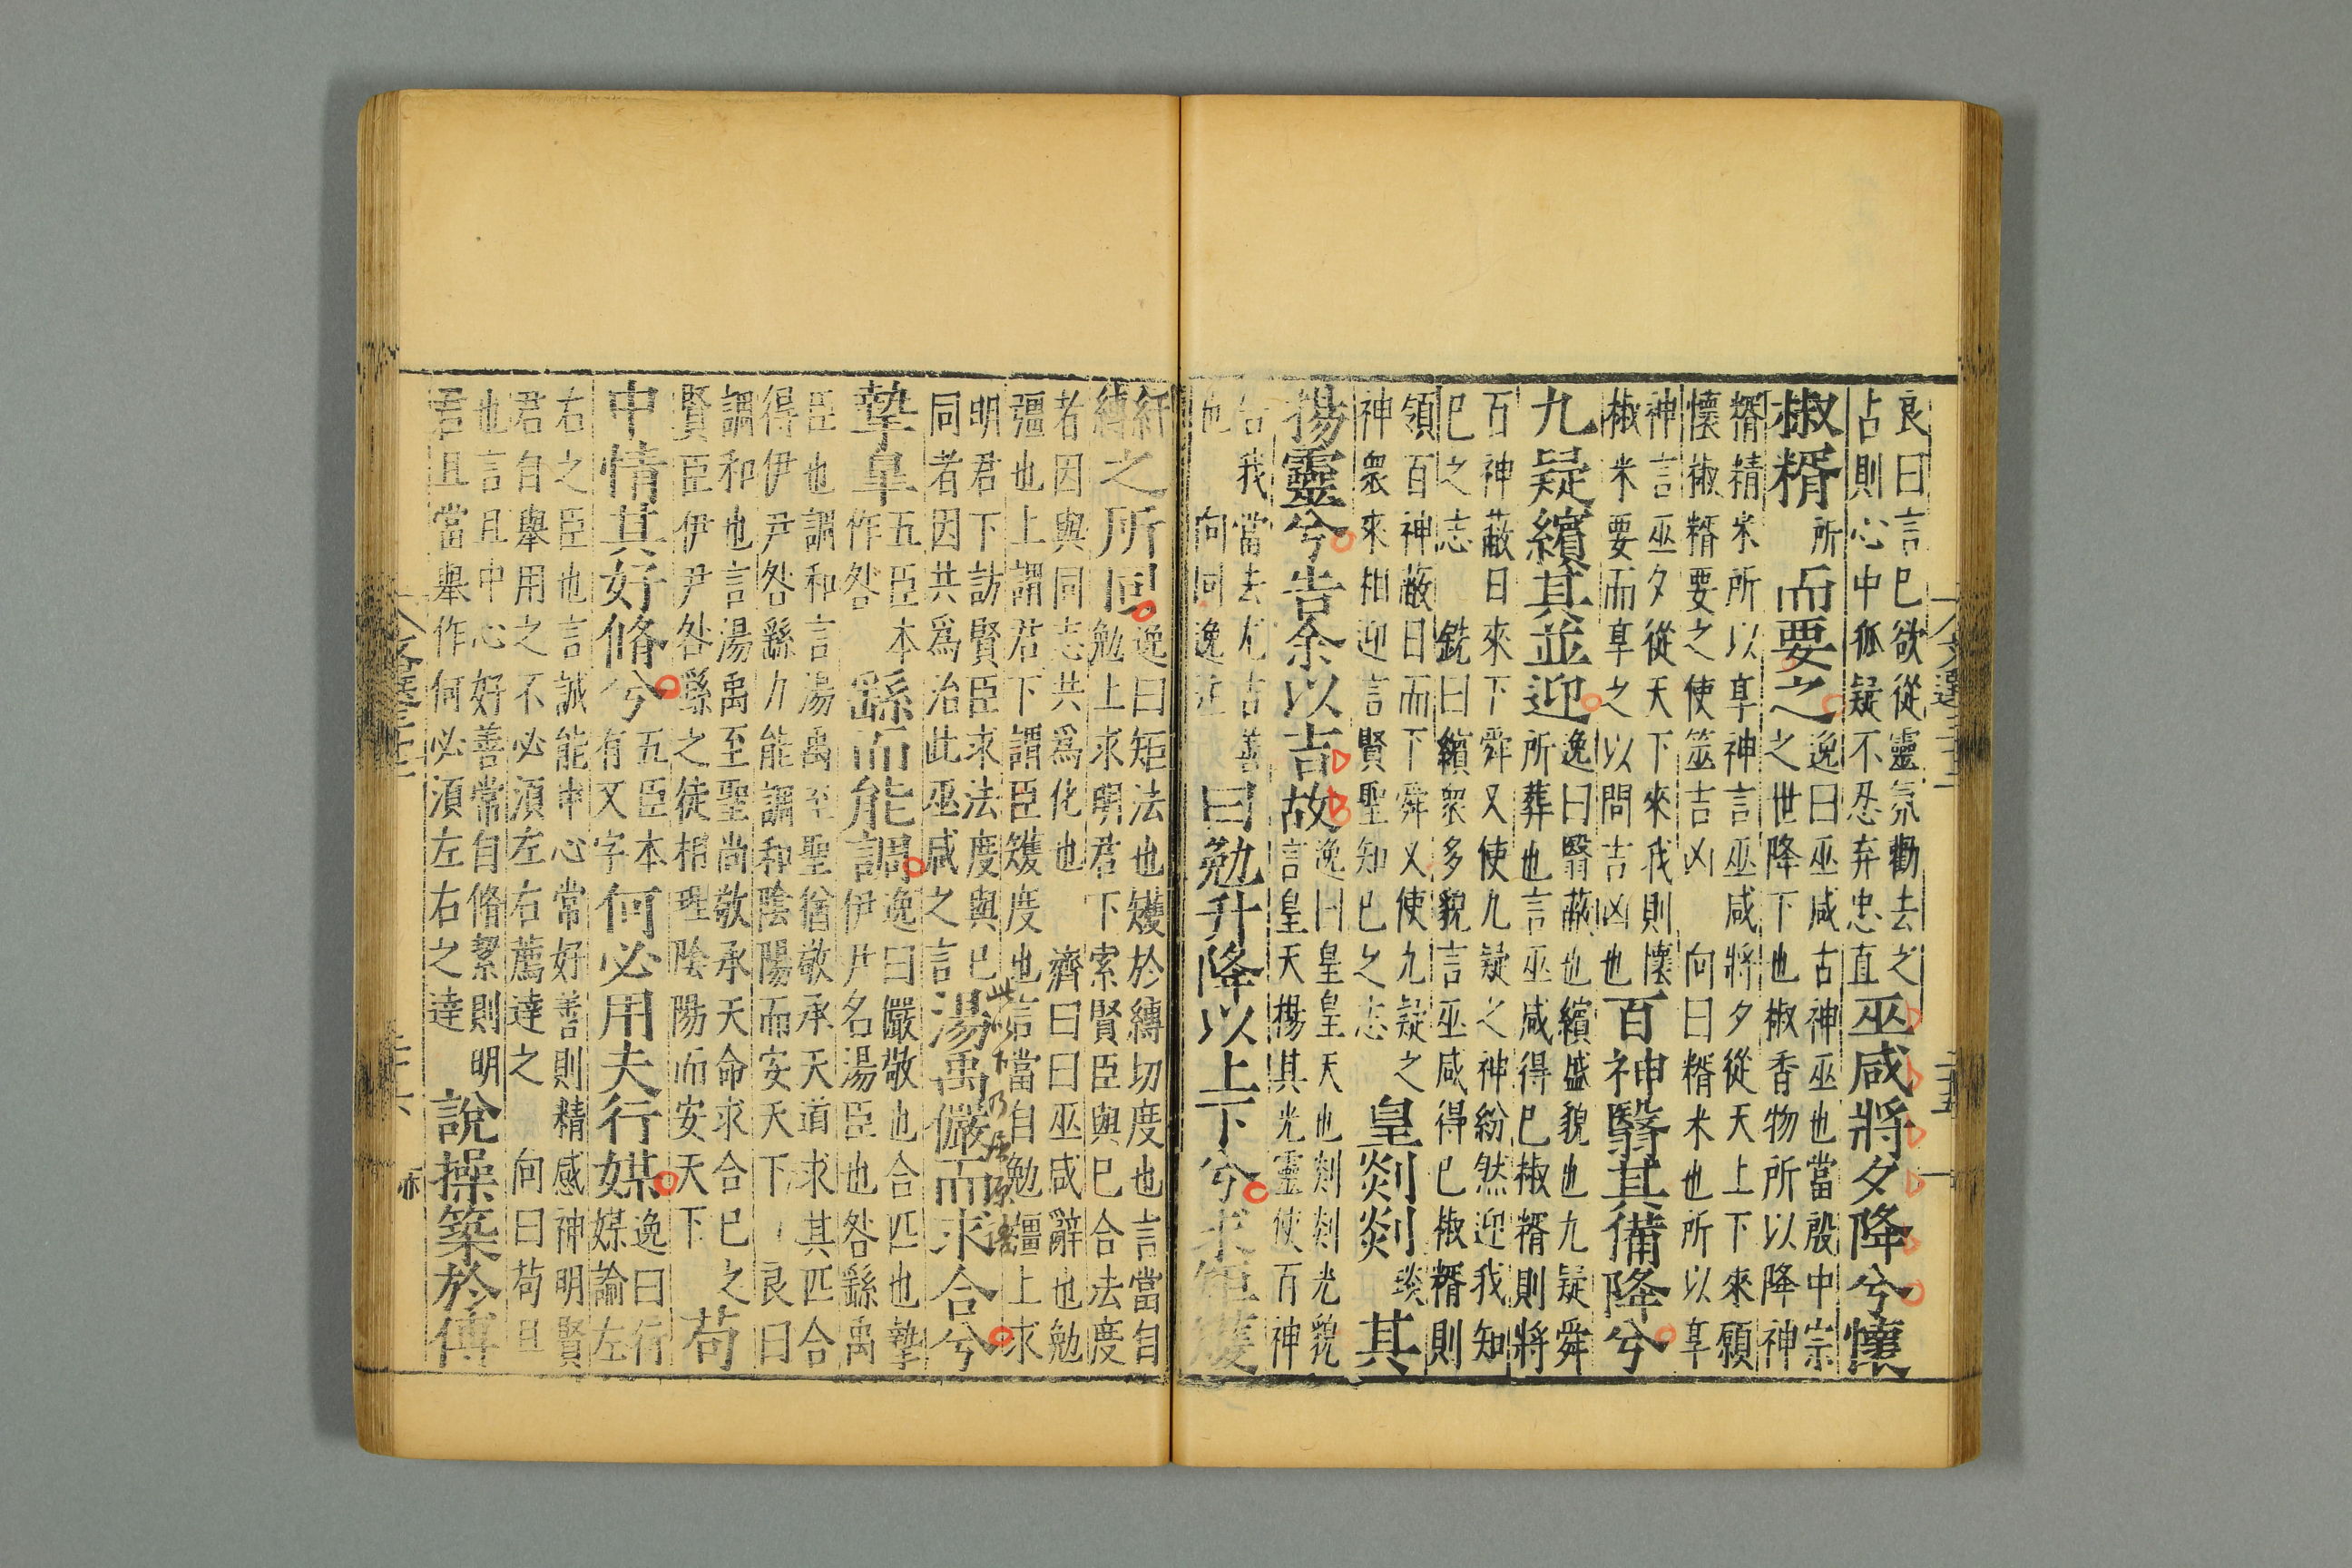 六文選三十二 二十五
良曰言巳欲從靈氛勸去之
占則心中狐疑不忍弃忠直
巫咸將夕降兮懷
椒糈
所
而要之
逸曰巫咸古神巫也當殷中宗
之世降下也椒香物所以降神
糈精米所以享神言巫咸將夕從天上下來願
懷椒糈要之使筮吉凶 向曰糈米也所以享
神言巫夕從天下來我則懷
椒米要而享之以問吉凶也
百神翳其備降兮
九疑繽其並迎
逸曰翳蔽也繽盛貌也九疑舜
所葬也言巫咸得巳椒糈則將
百神蔽日來下舜又使九疑之神紛然迎我知
巳之志 銑曰繽衆多貌言巫咸得巳椒糈則
領百神蔽日而下舜又使九疑之
神衆來相迎言賢聖知巳之志
皇剡剡
琰
其
揚靈兮告余以吉故
逸曰皇皇天也剡剡光貌
言皇天揚其光靈使百神
告我當去尤吉善
也 向同逸注
曰勉升降以上下兮求矩矱
紆
縛
之所同
逸曰矩法也矱於縛切度也言當自
勉上求明君下索賢臣與巳合法度
者因與同志共爲化也 濟曰曰巫咸辭也勉
彊也上謂君下謂臣矱度也言當自勉彊上求
明君下訪賢臣求法度與巳
同者因共爲治此巫咸之言
此以下乃屈原語
湯禹儼而求合兮
摯臯
五臣本
作咎
繇而能調
逸曰儼敬也合匹也摯
伊尹名湯臣也咎繇禹
臣也調和言湯禹至聖猶敬承天道求其匹合
得伊尹咎繇力能調和陰陽而安天下 良曰
調和也言湯禹至聖尚敬承天命求合巳之
賢臣伊尹咎繇之徒相理陰陽而安天下
苟
中情其好脩兮
五臣本
有又字
何必用夫行媒
逸曰行
媒諭左
右之臣也言誠能中心常好善則精感神明賢
君自舉用之不必須左右薦達之 向曰苟且
也言且中心好善常自脩絜則明
君且當舉作何必須左右之達
說操築於傅